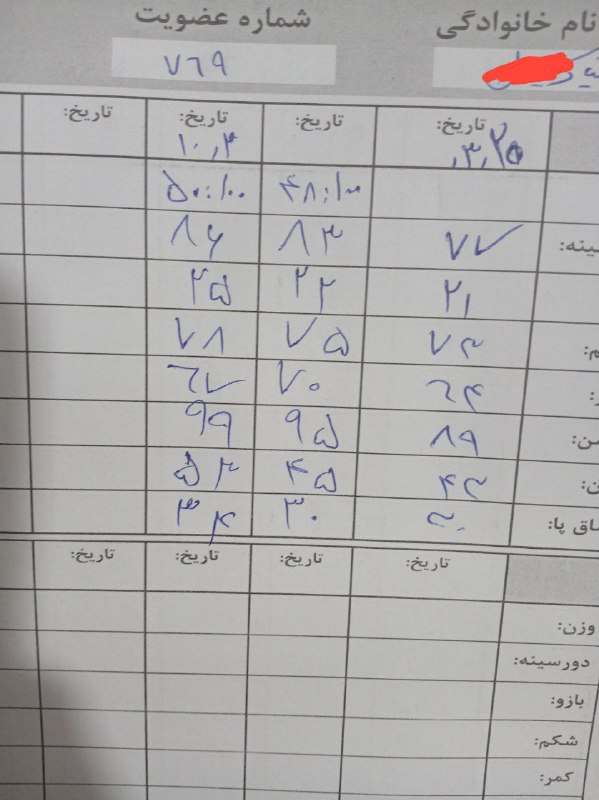 نام خانوادگی شماره عضویت
۷۶۹
تاریخ: تاریخ: تاریخ: تاریخ:
۱۰٫۳
۴۸:۱۰۰ ۵۰:۱۰۰
ینه: ۷۷ ۸۳ ۸۶
۲۱ ۲۲ ۲۵
م: ۷۳ ۷۵ ۷۸
ر: ۶۴ ۷۰ ۶۷
ن: ۸۹ ۹۵ ۹۹
ن: ۴۳ ۴۵ ۵۲
ساق پا: ۳۰ ۳۴
تاریخ: تاریخ: تاریخ: تاریخ:
وزن:
دورسینه:
بازو:
شکم:
کمر: